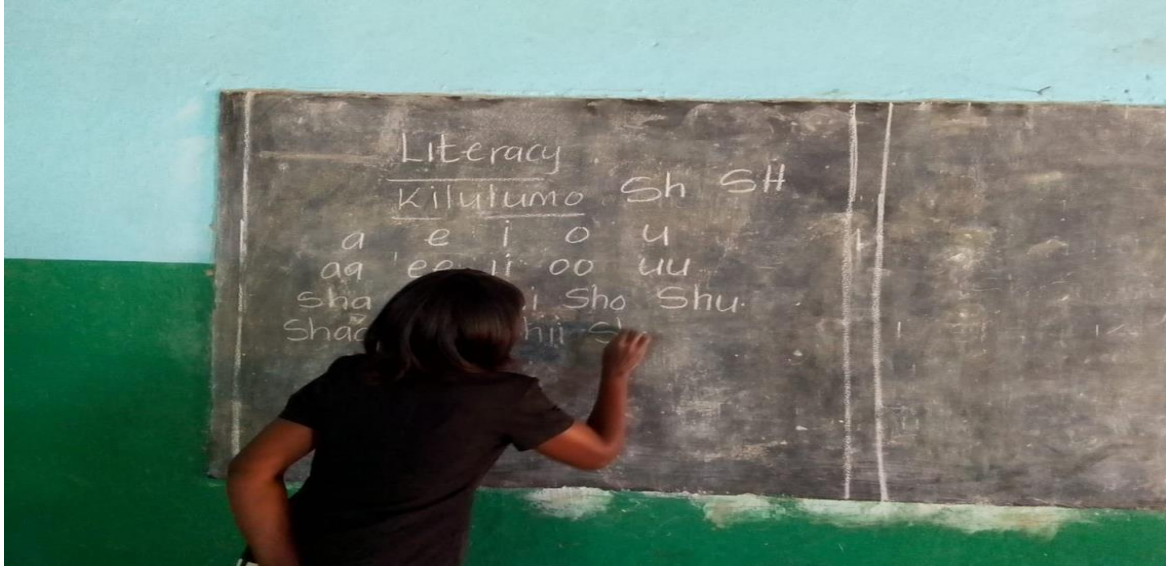 Literacy
Kilulumo Sh SH
a e i o u
aa ee ii oo uu
Sha i Sho Shu
Shaa hii